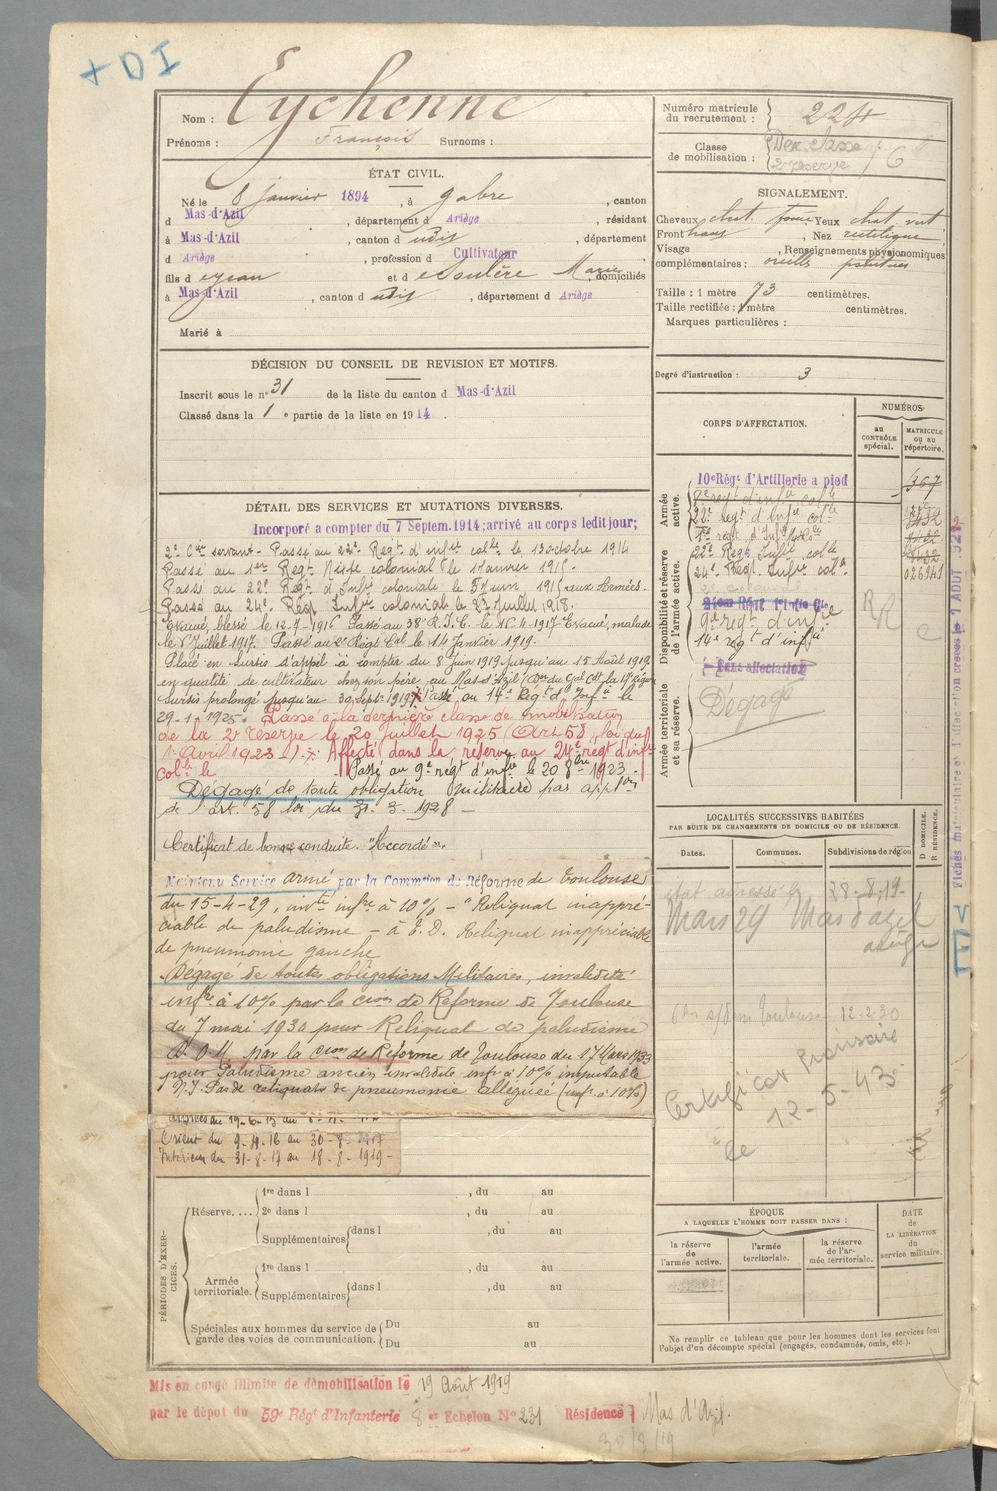 + DI
Nom : Eychenne
Prénoms : François Surnoms :
ÉTAT CIVIL.
Né le 8 janvier 1894, à Gabre, canton
d Mas-d'Azil, département d Ariège, résidant
à Mas-d'Azil, canton d udit, département
d Ariège, profession d Cultivateur
fils d e Jean et d e Soulère Marie, domiciliés
à Mas-d'Azil, canton d udit, département d Ariège
Marié à
DÉCISION DU CONSEIL DE REVISION ET MOTIFS.
Inscrit sous le n° 31 de la liste du canton d Mas-d'Azil
Classé dans la 1 e partie de la liste en 1914.
DÉTAIL DES SERVICES ET MUTATIONS DIVERSES.
Incorporé a compter du 7 Septem. 1914; arrivé au corps ledit jour;
2e Cer servant. Passé au Régt d'infie colle le 13 octobre 1914
Passé au 1er Régt Mixte colonial le 1 janvier 1915.
Passé au 22e Régt d'Infie coloniale le 5 Juin 1915 (aux Armées)
Passé au 24e Régt Infie coloniale le 27 Juillet 1918.
Evacué, blessé le 12-7-1916 Passé au 38e R.I.C. le 16-4-1917 Evacué, malade
le 5 juillet 1917. Passé au 2e Régt Cal le 14 Janvier 1919.
Placé en sursis d'appel à compter du 8 Juin 1919 jusqu'au 15 Août 1919
en qualité de cultivateur chez son père au Mas d'Azil (Don du Gal Cdt la 17e Région
Sursis prolongé jusqu'au 30 Septe 1919. Passé au 14e Régt d'Infie le
29-1-1925. Passé à la dernière classe de mobilisation
de la 2e réserve le 20 juillet 1925 (Art 58 loi du
1 Avril 1923). Affecté dans la réserve au 24e régt d'infie
colle le Passé au 9e régt d'infie le 20 8bre 1923.
Dégagé de toute obligation militaire par appon
de l'art. 58 loi du 31-3-1928 —
Certificat de bonne conduite. "Accordé".
Maintenu Service armé par la Commtion de Réforme de Toulouse
du 15-4-29, invté infre à 10% - "Reliquat inappré-
ciable de paludisme - à E.D. Reliquat inappréciable
de pneumonie gauche
Dégagé de toutes obligations Militaires, invalidité
infre à 10% par la Cion de Réforme de Toulouse
du 7 mai 1930 pour Reliquat de paludisme
par la Cion de Réforme de Toulouse du 17 Mars 1933
pour Paludisme ancien invalidité infr à 10% imputable
N.I. Pas de reliquats de pneumonie alléguée (inf. à 10%)
Orient du 9-4-16 au 30-8-1917
Intérieur du 31-8-17 au 18-8-1919-
PÉRIODES D'EXERCICES.
Réserve.... 1re dans l , du au
2e dans l , du au
Supplémentaires dans l , du au
du au
Armée territoriale. 1re dans l , du au
Supplémentaires dans l , du au
du au
Spéciales aux hommes du service de garde des voies de communication. Du au
Du au
Mis en congé illimité de démobilisation le 19 Août 1919
par le dépôt du 59e Régt d'Infanterie 8 e Echelon N° 231 Résidence Mas d'Azil.
30/8/19
Numéro matricule du recrutement : 224
Classe de mobilisation : Der classe 2e réserve /6
SIGNALEMENT.
Cheveux chat. foncé Yeux chat. vert
Front haut, Nez rectiligne
Visage , Renseignements physionomiques
complémentaires : oreilles pointues
Taille : 1 mètre 73 centimètres.
Taille rectifiée : 1 mètre centimètres.
Marques particulières :
Degré d'instruction : 3
CORPS D'AFFECTATION.
NUMÉROS
au CONTRÔLE spécial.
MATRICULE ou au répertoire.
Armée active.
10e Régt d'Artillerie a pied 367
régt d'infie colle
22e régt d'Infie colle
1er régt d'Inf
22e Régt Infie colle
24e Régt Infie colle
Disponibilité et réserve de l'armée active.
9e régt d'infie
14e régt d'infie
RR
Sans affectation
Armée territoriale et sa réserve.
Dégagé
LOCALITÉS SUCCESSIVES HABITÉES
PAR SUITE DE CHANGEMENTS DE DOMICILE OU DE RÉSIDENCE.
Dates. Communes. Subdivisions de région
D DOMICILE.
R RÉSIDENCE.
état adressé le 28-8-19-
Mars 29 Mas d'azil
ariège
Toulouse 12-2-30
Certificat provisoire
le 12-5-43
ÉPOQUE
A LAQUELLE L'HOMME DOIT PASSER DANS :
la réserve de l'armée active.
l'armée territoriale.
la réserve de l'armée territoriale.
DATE de LA LIBÉRATION du service militaire.
Ne remplir ce tableau que pour les hommes dont les services font
l'objet d'un décompte spécial (engagés, condamnés, omis, etc.).